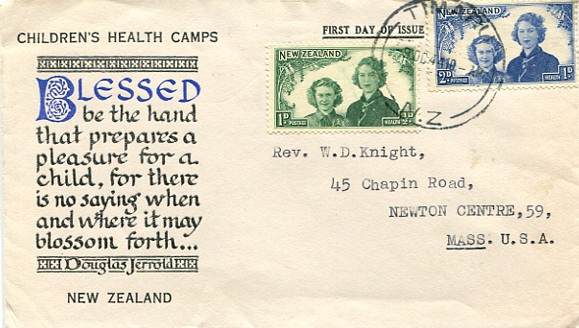 CHILDREN'S HEALTH CAMPS
BLESSED
be the hand
that prepares a
pleasure for a
child, for there
is no saying when
and where it may
blossom forth...
Douglas Jerrold
NEW ZEALAND
FIRST DAY OF ISSUE
NEW ZEALAND
1D POSTAGE HEALTH ½D
2D POSTAGE HEALTH 1D
TIMARU
N.Z
Rev. W.D.Knight,
45 Chapin Road,
NEWTON CENTRE,59,
MASS. U.S.A.